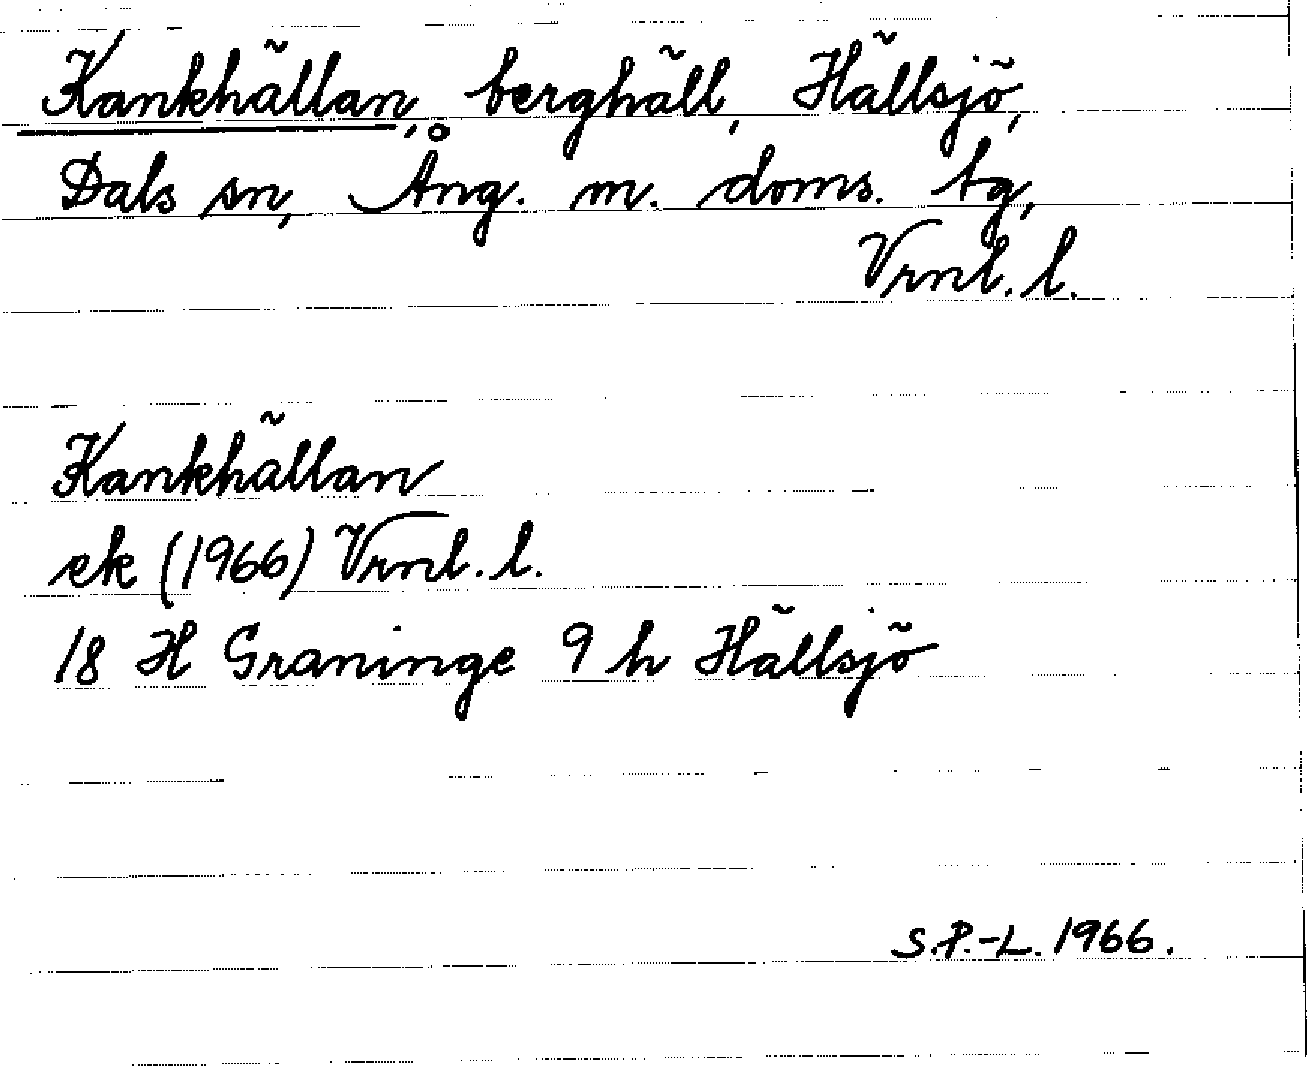 Kankhällan, berghäll, Hällsjö,
Dals sn, Ång. m. doms. tg,
Vrnl. l.
Kankhällan
ek (1966) Vrnl. l.
18 H Graninge 9 h Hällsjö
S.P.-L. 1966.